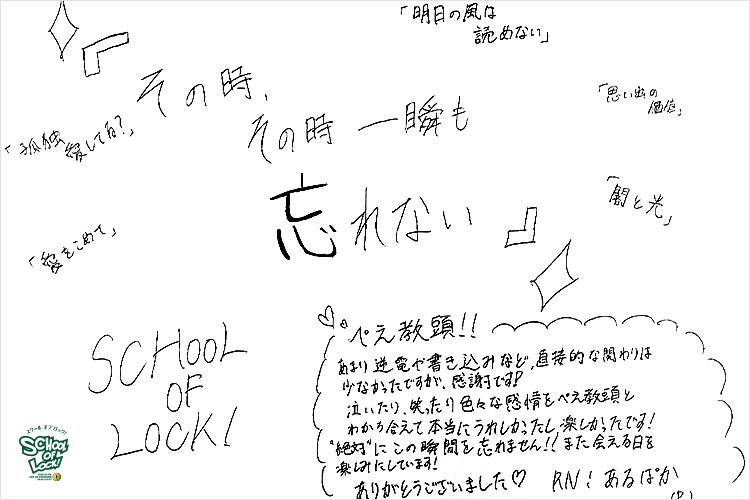 「明日の風は
読めない」
『その時、
その時 一瞬も
忘れない』
「思い出の
価値」
「孤独
愛してる?」
「闇と光」
「愛をこめて」
SCHOOL
OF
LOCK!
スクール オブ ロック!
SCHOOL
OF
LOCK!
ぺえ教頭!!
あまり逆電や書き込みなど、直接的な関わりは
少なかったですが、感謝です!
泣いたり、笑ったり色々な感情をぺえ教頭と
わかち合えて本当にうれしかったし、楽しかったです!
"絶対"にこの瞬間を忘れません!!また会える日を
楽しみにしています!
ありがとうございました♡ RN!あるぱか